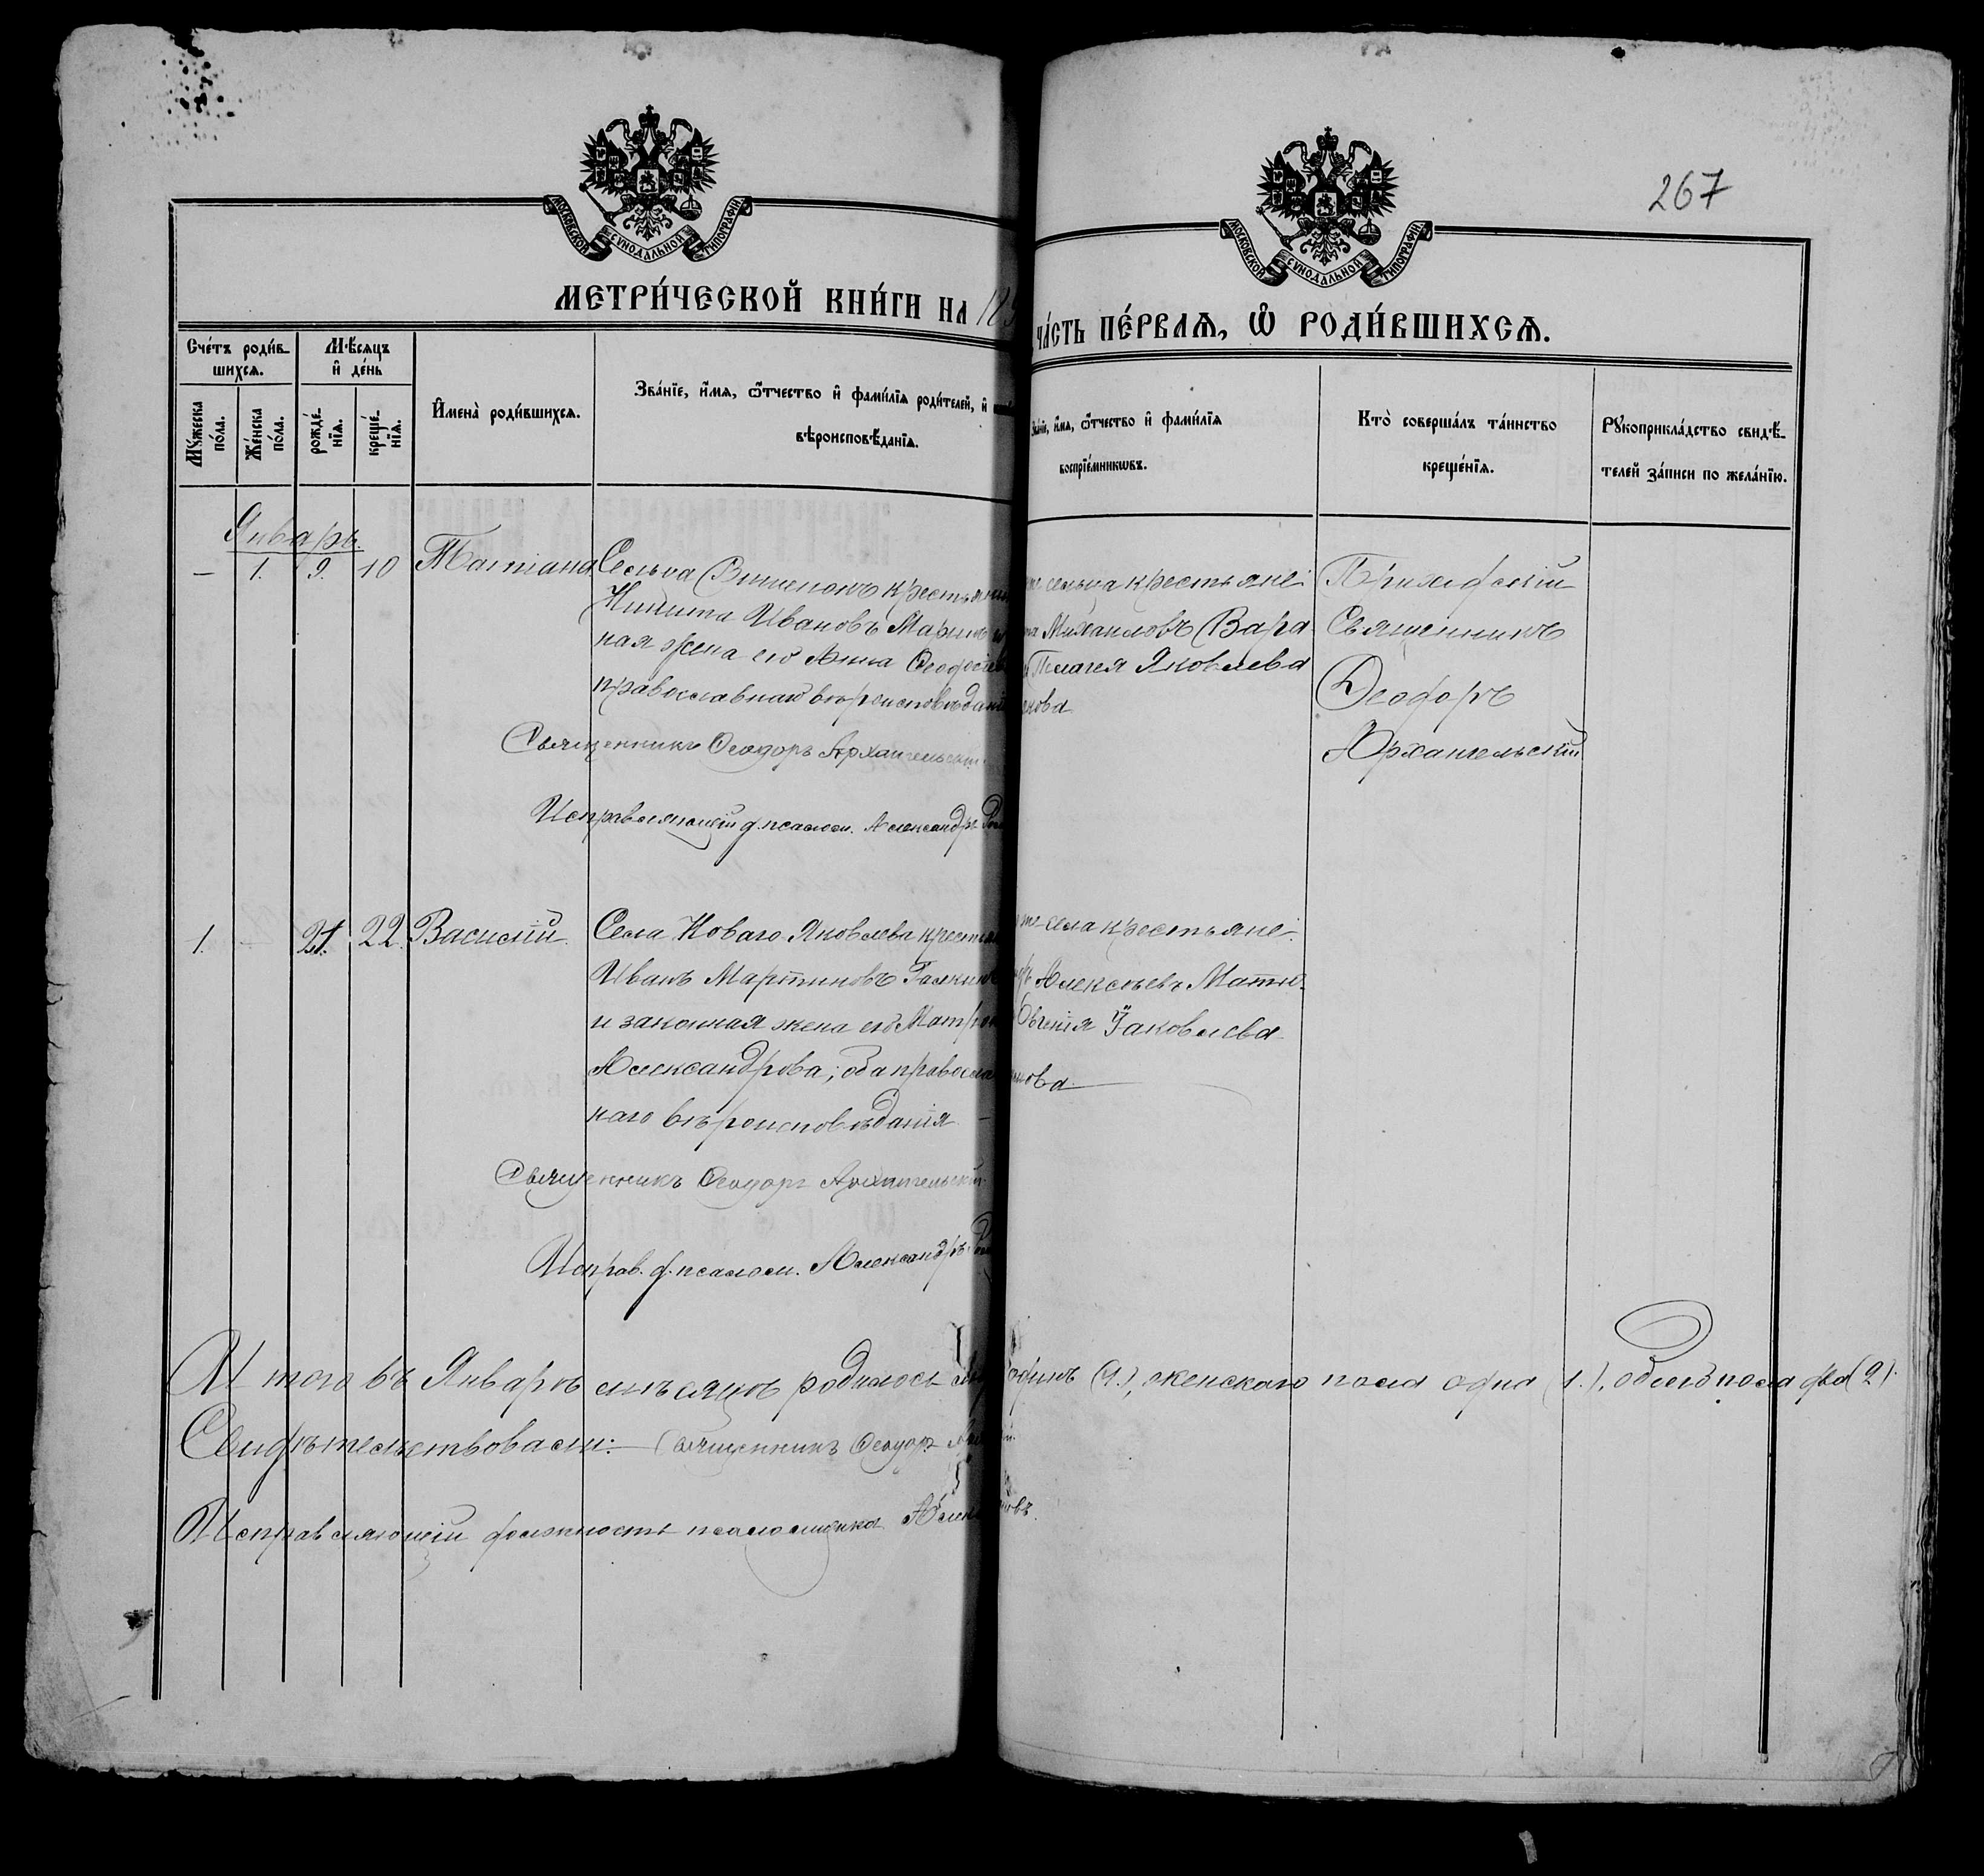 267
МОСКОВСКОЙ СѴНОДАЛЬНОЙ ТИПОГРАФІИ
МОСКОВСКОЙ СѴНОДАЛЬНОЙ ТИПОГРАФІИ
МЕТРИ́ЧЕСКОЙ КНИ́ГИ НА 18
ЧА́СТЬ ПЕ́РВАѦ, Ѡ҆ РОДИ́ВШИХСѦ.
Сче́тъ роди́в-
шихсѧ.
Мѣ́сѧцъ
и҆ де́нь
Мꙋ́жеска по́ла.
Же́нска по́ла.
рожде́-нїѧ.
креще́-нїѧ.
И҆мена̀ роди́вшихсѧ.
Зва́нїе, и҆́мѧ, ѻ҆́тчество и҆ фами́лїѧ роди́телей, и҆
вѣроисповѣ́данїѧ.
Зва́нїе, и҆́мѧ, ѻ҆́тчество и҆ фами́лїѧ
воспрїе́мникѡвъ.
Кто̀ соверша́лъ та́инство
креще́нїѧ.
Рꙋкоприкла́дство свидѣ́-
телей за́писи по жела́нїю.
Январь.
— 1. 9. 10 Татіана
Сельца крестьян
Никита Ивановъ
ная жена его Анна Ѳеодосіев
православнаго вѣроисповѣдані
Священникъ Ѳеодоръ Архангельскій
Исправляющій д. псалом. Александръ
же сельца крестьяне:
Михаиловъ Вара
Пелагея Яковлева
кова.
Приходскій
Священникъ
Ѳеодоръ
Архангельскій
1. — 21. 22. Василій.
Села Новаго Яковлева крестья
Иванъ Мартиновъ Галкинъ
и законная жена его Матрон
Александрова; оба православ
наго вѣроисповѣданія —
Священникъ Ѳеодоръ Архангельскій
Исправ. д. псалом. Александръ
же села крестьяне:
Алексѣевъ Матю-
Евгенія Іаковлева
кова.
И того въ Январѣ мѣсяцѣ родилось одинъ (1.), женскаго пола одна (1.), обоего пола два (2).
Свидѣтельствовали: — Священникъ Ѳеодоръ
Исправляющій должность псаломщика Алек новъ.